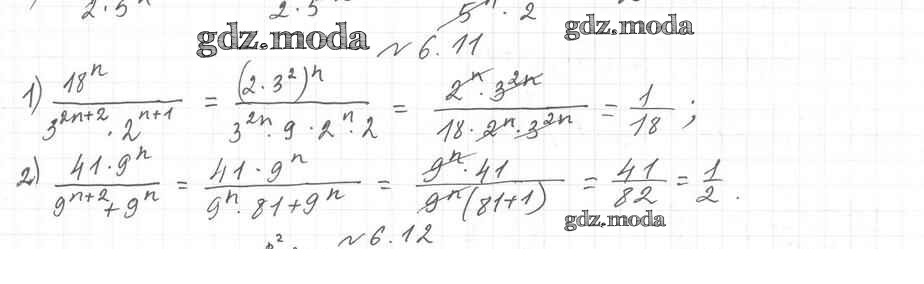 2·5 2·5 5ⁿ·2
gdz.moda №6.11 gdz.moda
1) 18ⁿ/(3²ⁿ⁺²·2ⁿ⁺¹) = (2·3²)ⁿ/(3²ⁿ·9·2ⁿ·2) = (2ⁿ·3²ⁿ)/(18·2ⁿ·3²ⁿ) = 1/18;
2) 41·9ⁿ/(9ⁿ⁺²+9ⁿ) = 41·9ⁿ/(9ⁿ·81+9ⁿ) = 9ⁿ·41/(9ⁿ(81+1)) = 41/82 = 1/2.
gdz.moda
№6.12